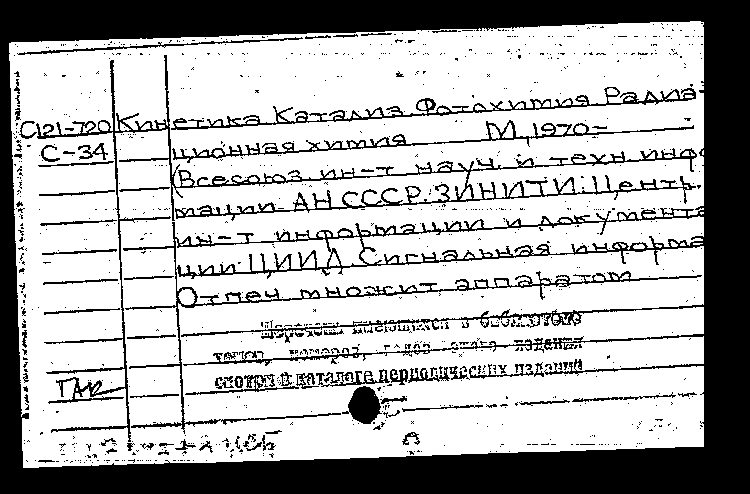 С121-720 Кинетика Катализ Фотохимия Радиа-
С-34 ционная химия М, 1970-
(Всесоюз. ин-т науч. и техн. инфо
мации АН СССР. ЗИНИТИ: Центр.
ин-т информации и документа
ции ЦИИД Сигнальная информа
Отпеч множит аппаратом
Перечень имеющихся в библиотеке
томов, номеров, годов этого издания
смотри в каталоге периодических изданий